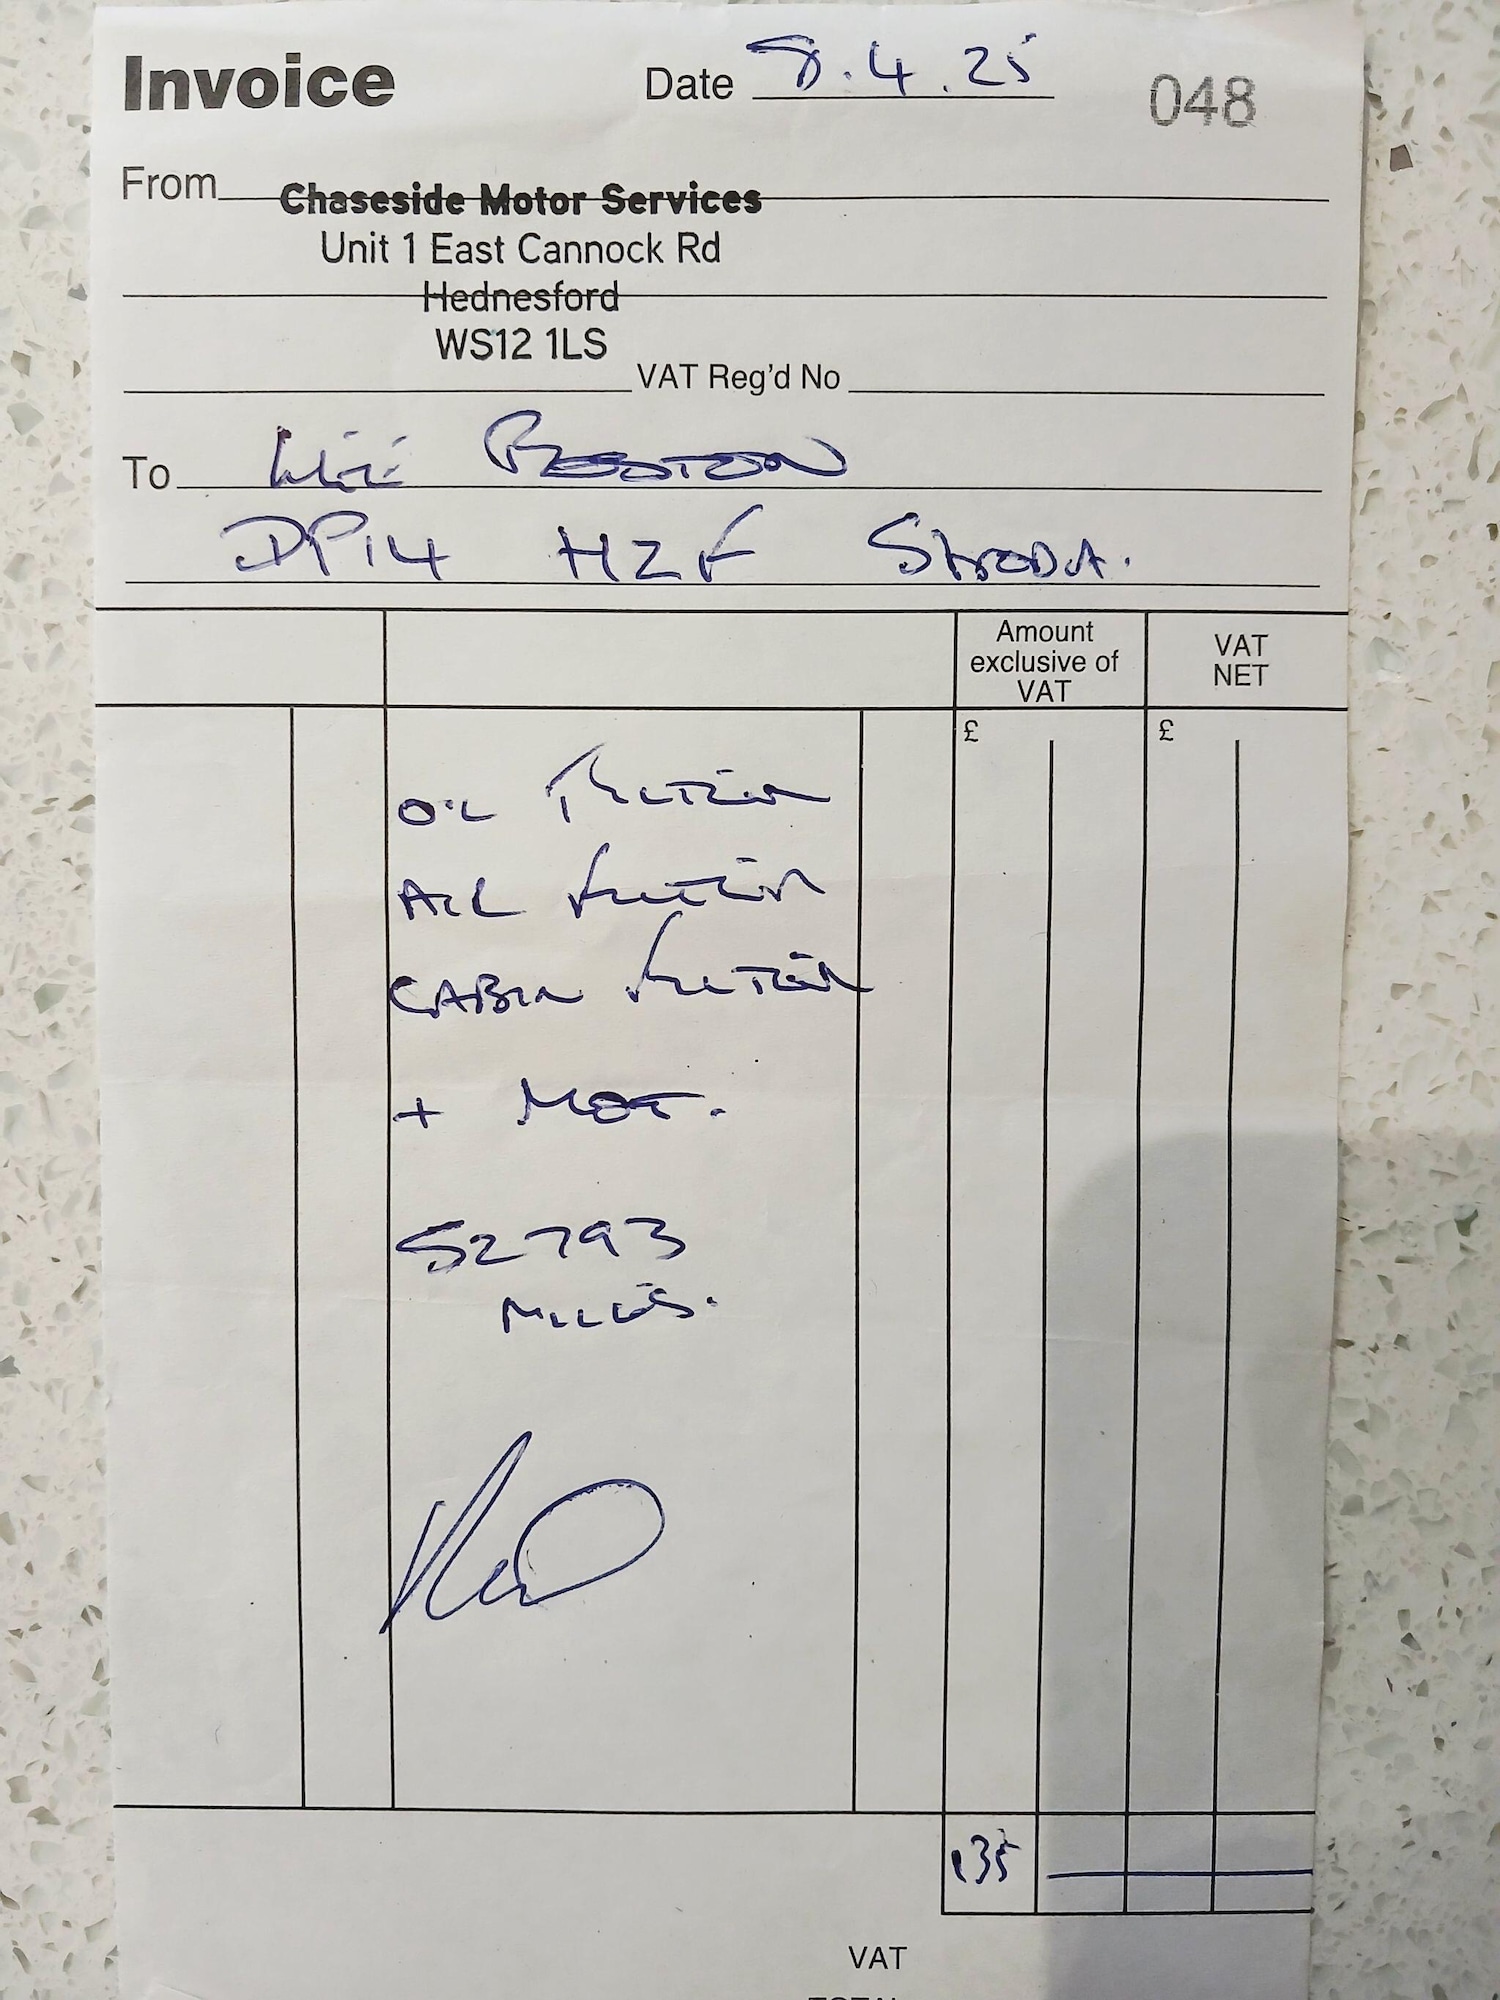 Invoice Date 8.4.25 048
From Chaseside Motor Services
Unit 1 East Cannock Rd
Hednesford
WS12 1LS
VAT Reg'd No
To LEE PRESTON
DP14 HZF SKODA.
Amount exclusive of VAT
VAT NET
£ £
OIL FILTER
AIR FILTER
CABIN FILTER
+ MOT.
52793
MILES.
135
VAT
TOTAL